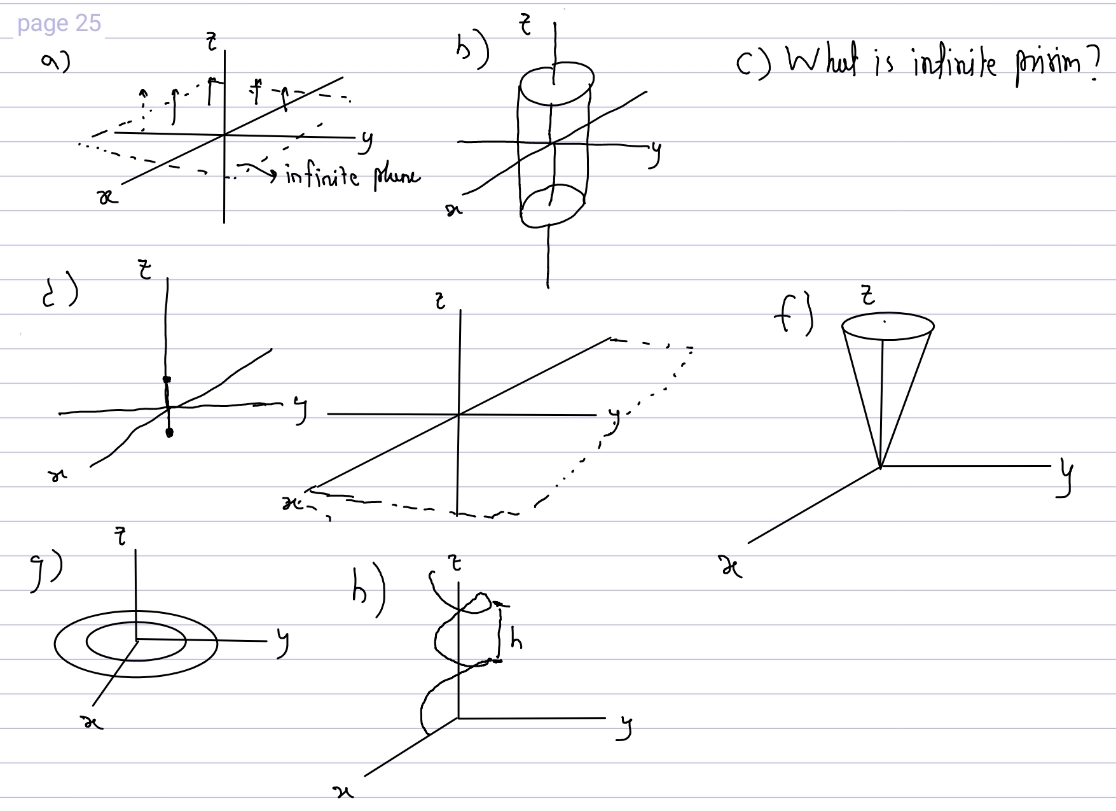 page 25
a) z y x infinite plane
b) z y x
c) What is infinite prisim?
d) z y x
z y x
f) z y x
g) z y x
h) z h y x